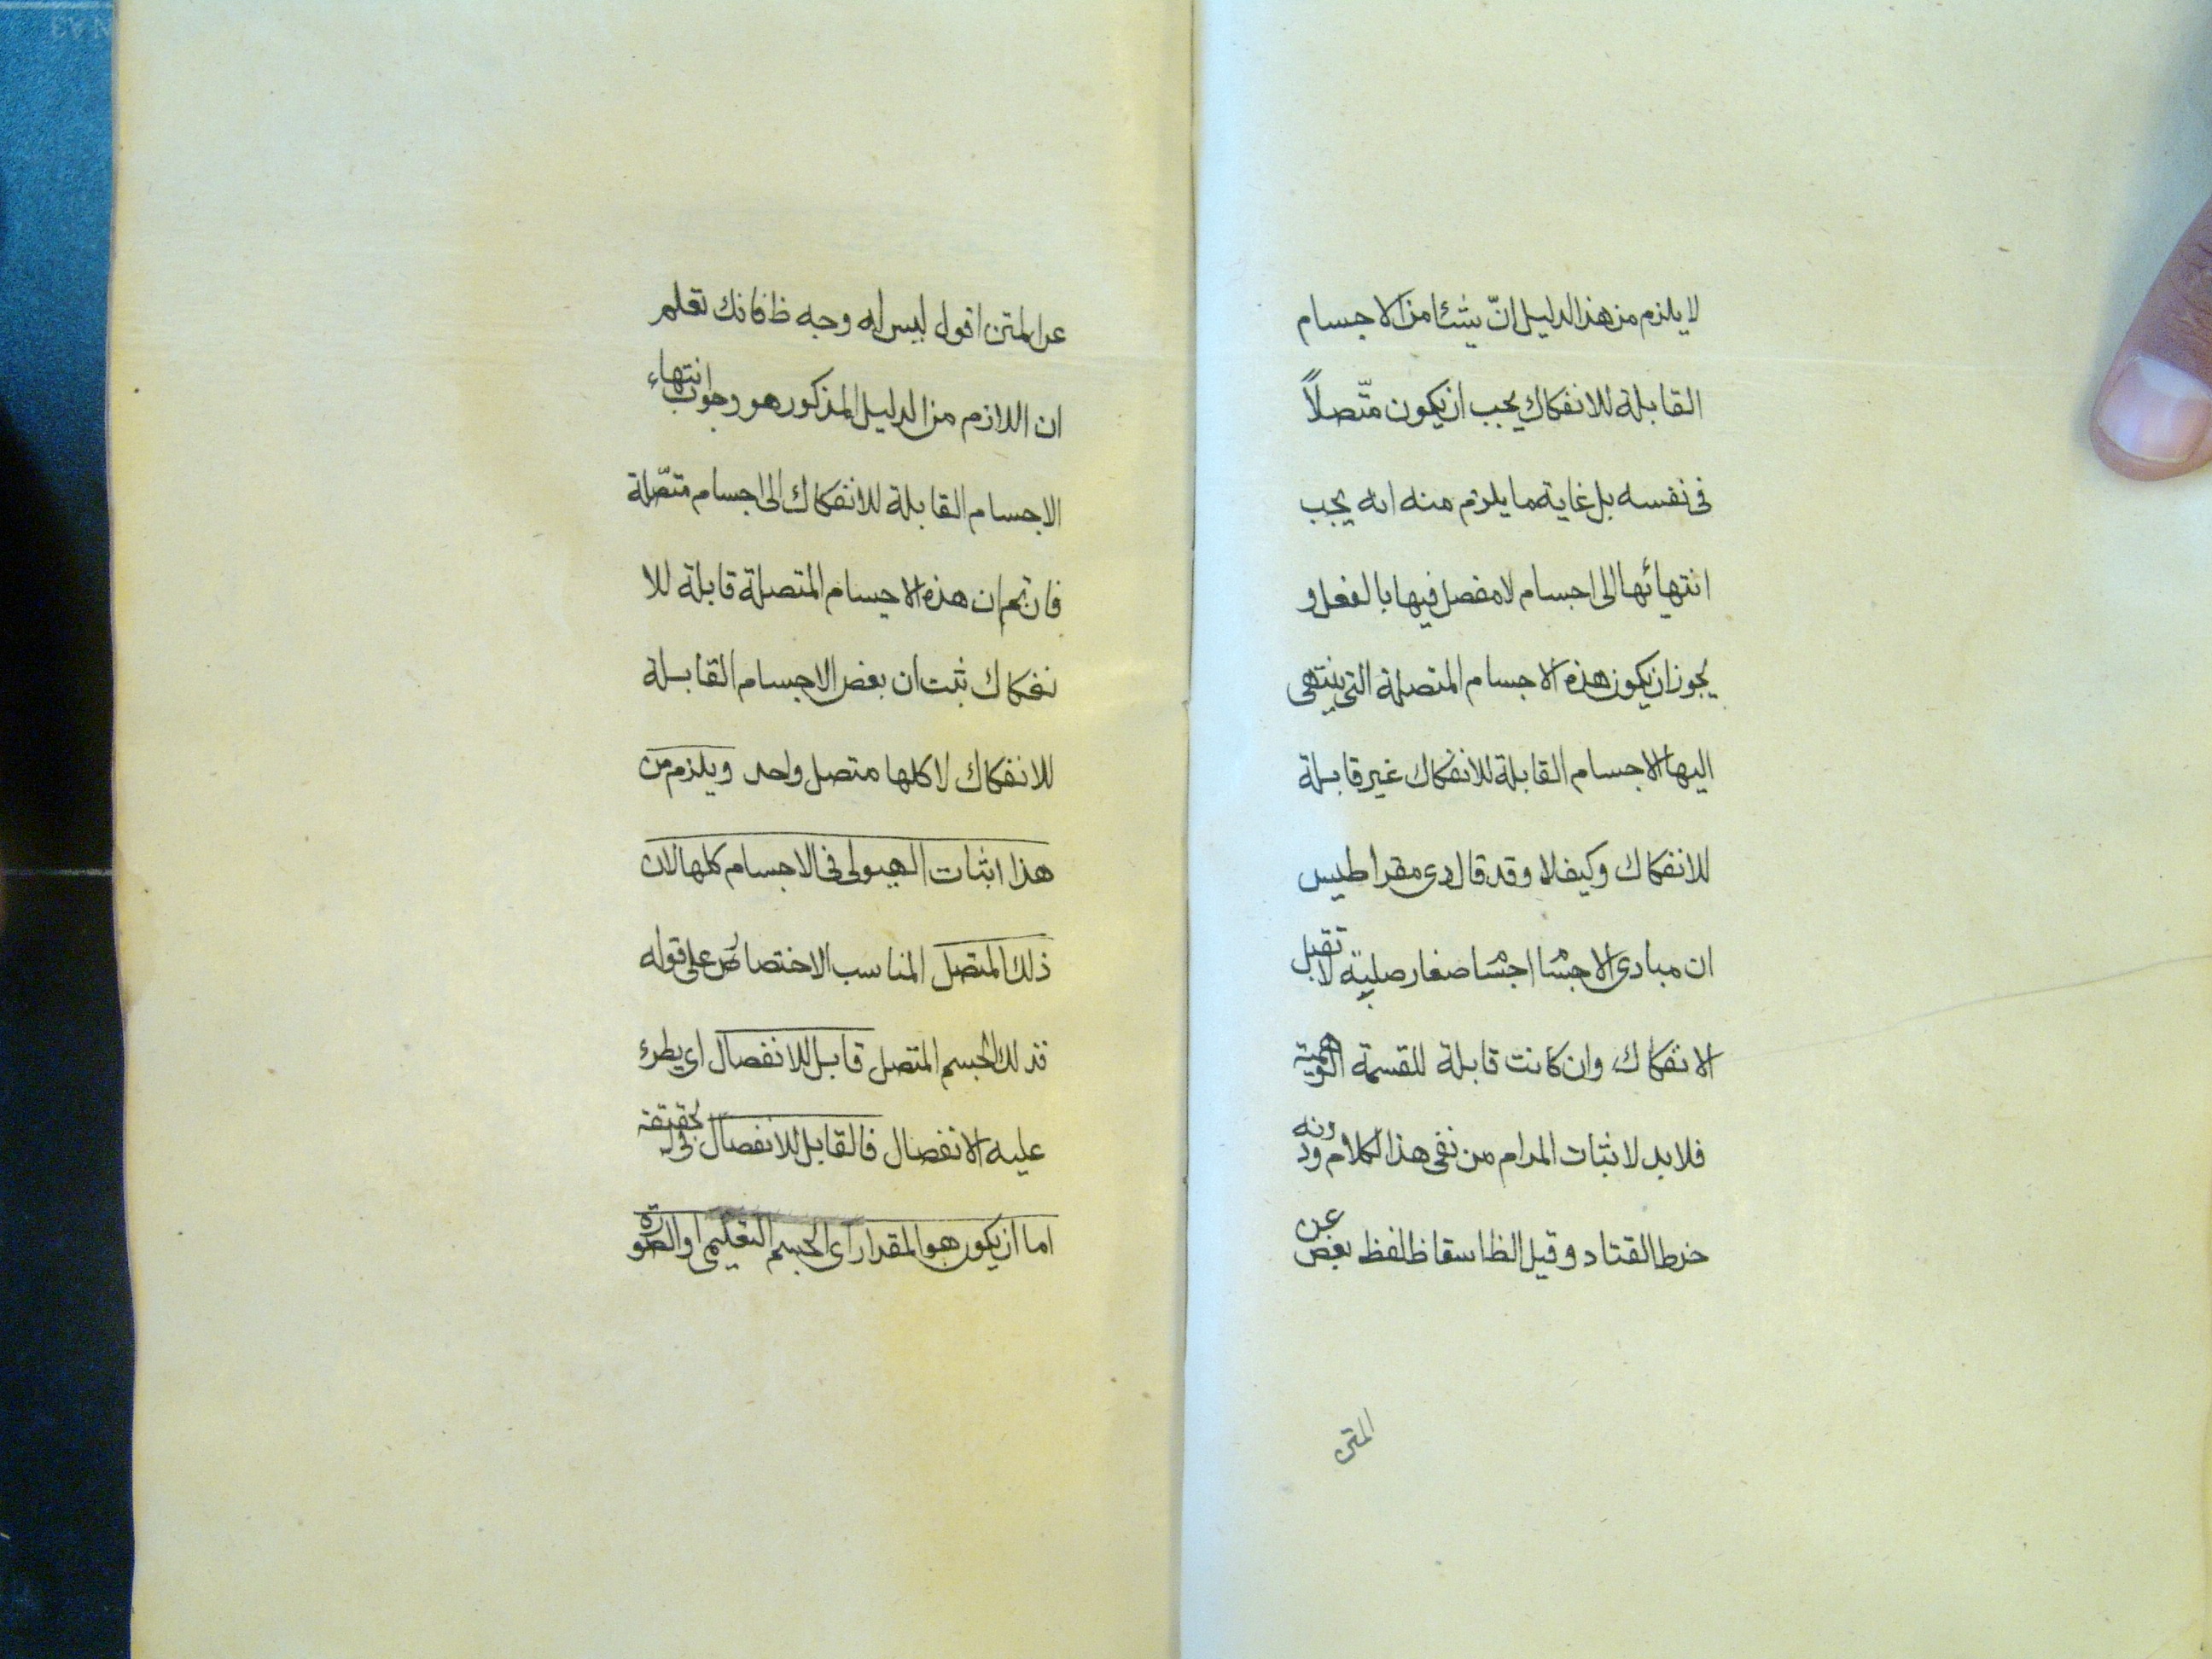 لا يلزم من هذا الدليل انّ شيئا من الاجسام
القابلة للانفكاك يجب ان يكون متّصلاً
فى نفسه بل غاية ما يلزم منه انه يجب
انتهائها الى اجسام لا مفصل فيها بالفعل و
يجوز ان يكون هذه الاجسام المتصلة التى ينتهى
اليها الاجسام القابلة للانفكاك غير قابلة
للانفكاك وكيف لا وقد قال ذى مقراطيس
ان مبادى الاجسا اجسا صغار صلبة لا تقبل
الانفكاك وان كانت قابلة للقسمة الوهمية
فلا بد لاثبات المرام من نفى هذا الكلام ودونه
خرط القتاد وقيل الظ اسقاط لفظ بعض عن
المتن
عن المتن اقول ليس له وجه ظ فانك تعلم
ان اللازم من الدليل المذكور هو وجوب انتهاء
الاجسام القابلة للانفكاك الى اجسام متصّلة
فان تم ان هذه الاجسام المتصلة قابلة للا
نفكاك ثبت ان بعض الاجسام القابلة
للانفكاك لا كلها متصل واحد ويلزم من
هذا اثبات الهيولى فى الاجسام كلها لان
ذلك المتصل المناسب الاختصار على قوله
فذلك الجسم المتصل قابل للانفصال اى يطرء
عليه الانفصال فالقابل للانفصال فى الحقيقة
اما ان يكون هو المقدار اى الجسم التعليمى او الصورة